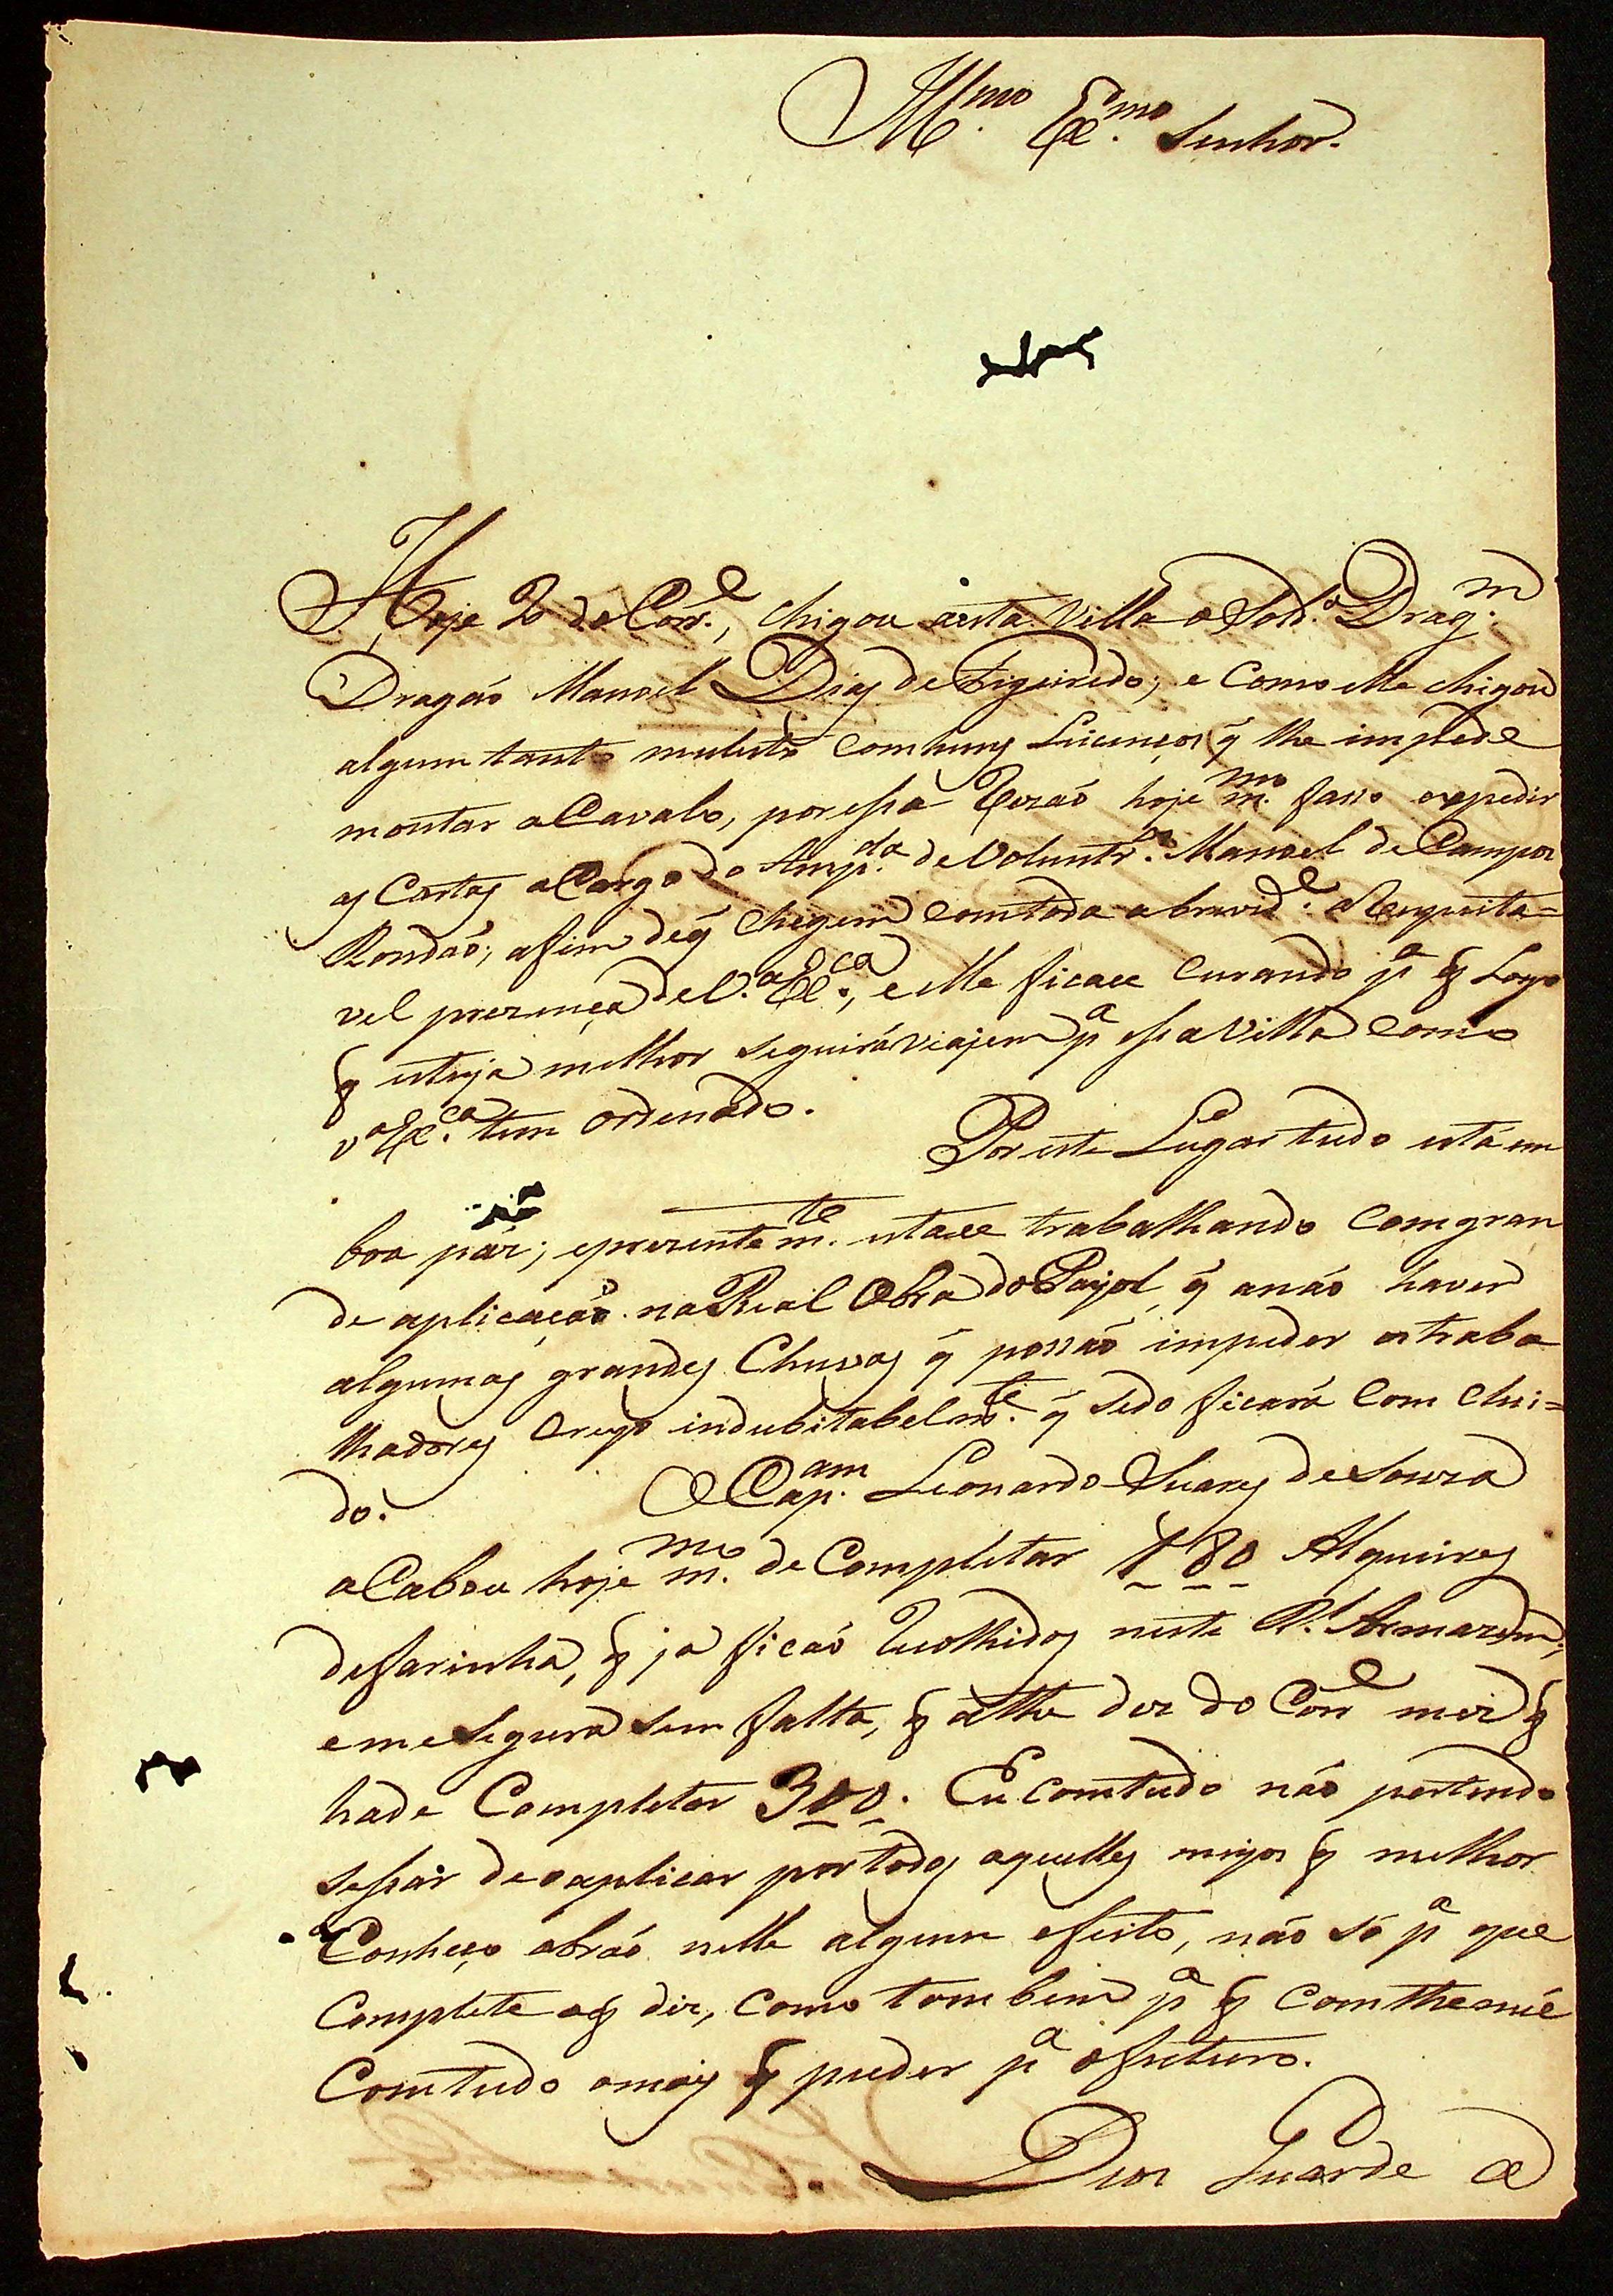 Ill.mo Ex.mo Senhor.
Hoje 2 do Corr.e, chigou aesta Villa o Sold.o Drag.m
Dragaõ Manoel Dias de Figueiredo; e Como elle chigou
algum tanto mulesto Comhuns q̃ lhe impede
montar aCavalo, poressa Rezaõ hoje m.mo fasso expedir
as Cartas aCargo do Ansp.da deVoluntr.os Manoel de Campos
Rondaõ; afim deq̃ Chegem Comtoda abrevid.e aRespeita=
vel prezença deV.a Ex.ca, eelle ficace Curando p.a q̃ Logo
q̃ esteja melhor seguirá viajem p.a essaVilla Como
V.a Ex.ca tem ordenado.
Poreste Lugar tudo está em
boa páz; eprezentem.te estace trabalhando Comgran
de aplicaçaõ naReal Obra doPayol, q̃ anaõ haver
algumas grandes Chuvas q̃ possaõ impeder ostraba
lhadores Creyo indubitabelm.te q̃ sedo ficará Comclui=
do.
OCap.am Leonardo Suares deSouza
aCabou hoje m.mo deCompletar 180 Alqueires
defarinha, q̃ ja ficaõ Recolhidos neste R.l Armazem,
emeSegura sem falta, q̃ athe dez do Corr.e mez q̃
hade Completar 300. Eu comtudo naõ pertendo
sessar deoaplicar portodos aquelles meyos q̃ melhor
Conheço obraõ nelle algum efeito, naõ só p.a que
Complete oq̃ diz, Como tombem p.a q̃ Comthenúe
Comtudo omais q̃ puder p.a ofuturo.
Deos Guarde a